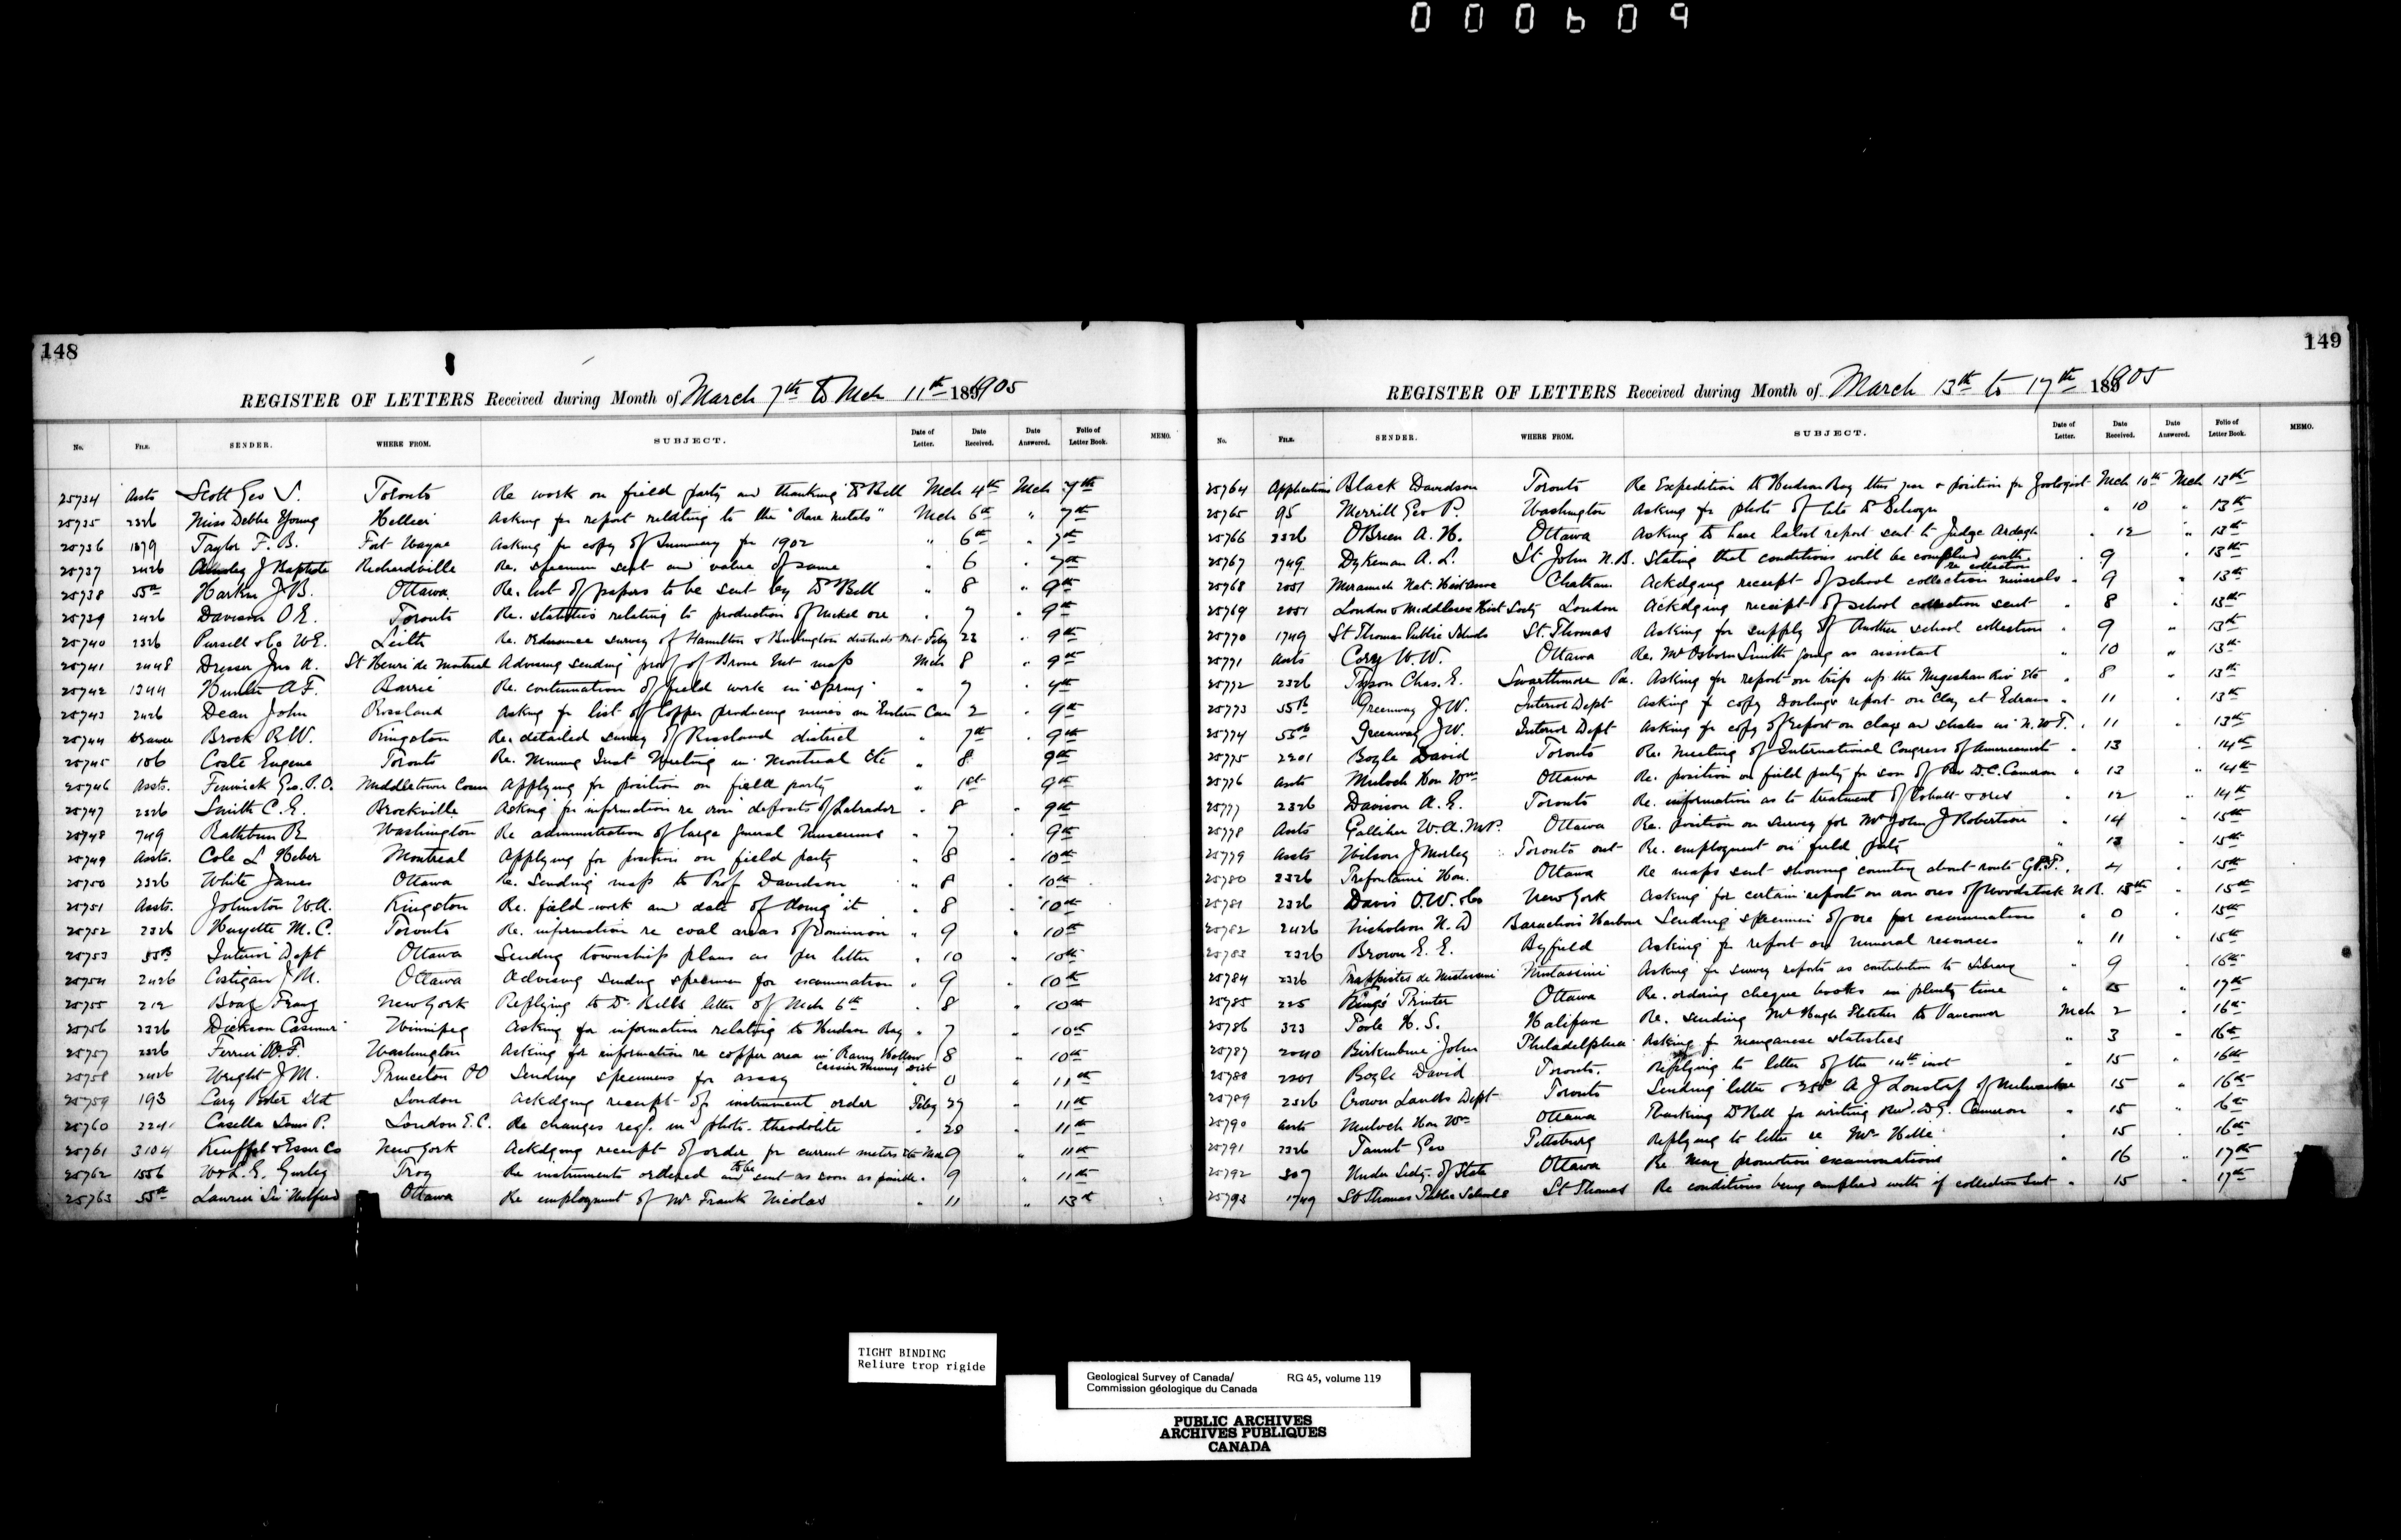 000609
148
REGISTER OF LETTERS Received during Month of March 7th to Mch 11th 1905
No. FILE. SENDER. WHERE FROM. SUBJECT. Date of Letter. Date Received. Date Answered. Folio of Letter Book. MEMO.
25734 Assts Scott Geo S. Toronto Re work on field party and thanking Dr Bell Mch 4th Mch 7th
25735 2326 Miss Debbe Young Hellier Asking for report relating to the "Rare Metals" Mch 6th " 7th
25736 1879 Taylor F. B. Fort Wayne Asking for copy of Summary for 1902 " 6th " 7th
25737 2426 J Baptiste Richardville Re. specimen sent and value of same " 6 " 7th
25738 55a Harkin J. B. Ottawa Re. list of papers to be sent by Dr Bell " 8 " 9th
25739 2426 Davison O E. Toronto Re. statistics relating to production of Nickel ore " 7 " 9th
25740 2326 Pursell & Co W E. Leith Re. Ordnance survey of Hamilton & Burlington districts Ont Feby 22 " 9th
25741 2448 Dresser Jno A. St Henri de Montreal Advising sending proof of Brome Mt map Mch 8 " 9th
25742 1344 Hunter A F. Barrie Re. continuation of field work in spring " 7 " 9th
25743 2426 Dean John Rossland Asking for list of Copper producing mines in Eastern Can 2 " 9th
25744 Brock R. W. Kingston Re. detailed survey of Rossland district " 7th " 9th
25745 186 Coste Eugene Toronto Re. Mining Inst Meeting in Montreal Etc " 8 9th
25746 Assts. Fenwick Geo. P. O. Middletown Conn Applying for position on field party " 1st 9th
25747 2326 Smith C. E. Brockville Asking for information re iron deposits of Labrador " 8 " 9th
25748 749 Rathbun R Washington Re administration of large general Museums " 7 " 9th
25749 Assts. Cole L Heber Montreal Applying for position on field party " 8 " 10th
25750 2326 White James Ottawa Re. Sending map to Prof Davidson " 8 " 10th
25751 Assts. Johnston W. A. Kingston Re. field-work and date of doing it " 8 " 10th
25752 2326 Huyette M. C. Toronto Re. information re coal areas of Dominion " 9 " 10th
25753 55B Interior Dept Ottawa Sending township plans as per letter " 10 " 10th
25754 2426 Costigan J M. Ottawa Advising sending specimen for examination " 9 " 10th
25755 212 Boas Franz New York Replying to Dr Bells letter of Mch 6th " 8 " 10th
25756 2326 Dickson Casimir Winnipeg Asking for information relating to Hudson Bay " 7 " 10th
25757 2326 Ferrier W. F. Washington Asking for information re copper area in Rainy Hollow 8 " 10th
Cassiar Mining Dist
25758 2426 Wright J M. Princeton Sending specimens for assay " 0 " 11th
25759 193 Cary Porter Ltd London Ackdging receipt of instrument order Feby 27 " 11th
25760 2241 Casella Louis P. London E. C. Re changes reqd. in photo-theodolite " 28 " 11th
25761 3104 Keuffel & Esser Co New York Ackdging receipt of order for current meters Etc Mch 9 " 11th
25762 1556 W & L. E. Gurley Troy Re instruments ordered and to be sent as soon as possible " 9 " 11th
25763 55a Laurier Sir Wilfrid Ottawa Re employment of Mr Frank Nicolas " 11 " 13th
149
REGISTER OF LETTERS Received during Month of March 13th to 17th 1905
No. FILE. SENDER. WHERE FROM. SUBJECT. Date of Letter. Date Received. Date Answered. Folio of Letter Book. MEMO.
25764 Applications Black Davidson Toronto Re Expedition to Hudson Bay this year & position for Zoologist Mch 10th Mch 13th
25765 95 Merrill Geo P. Washington Asking for photo of late Dr Selwyn " 10 " 13th
25766 2326 OBrien A. H. Ottawa Asking to have latest report sent to Judge Ardagh " 12 " 13th
25767 1749 Dykeman A. L. St John N. B. Stating that conditions will be complied with " 9 " 13th
re collection
25768 2051 Miramichi Nat. Hist Chatham Ackdging receipt of school collection minerals " 9 " 13th
25769 2051 London & Middlesex Hist Socty London Ackdging receipt of school collection sent " 8 " 13th
25770 1749 St Thomas Public Schools St. Thomas Asking for supply of Another school collection " 9 " 13th
25771 Assts Cory W. W. Ottawa Re. Mr Osborn Smith going as assistant " 10 " 13th
25772 2326 Tyson Chas. E. Swarthmore Pa. Asking for report on trips up the Nugeshan Riv Etc " 8 " 13th
25773 55B Greenway J. W. Interior Dept Asking for copy Dowling's report on Clay at Edrans " 11 " 13th
25774 55B Greenway J. W. Interior Dept Asking for copy of report on clays and shales in N. W. T. " 11 " 13th
25775 2201 Boyle David Toronto Re. Meeting of International Congress of Americanist " 13 " 14th
25776 Assts Mulock Hon Wm Ottawa Re. position on field party for son of Rev D. C. Cameron " 13 " 14th
25777 2326 Davison A. E. Toronto Re. information as to treatment of Cobalt ores " 12 " 14th
25778 Assts Galliher W. A. M. P. Ottawa Re. position on survey for Mr John J Robertson " 14 " 15th
25779 Assts Wilson J Morley Toronto Ont Re. employment on field party " 13 " 15th
25780 2326 Prefontaine Hon. Ottawa Re maps sent showing country about route G. P. P. " 4 " 15th
25781 2326 Davis O. W. & Co New York Asking for certain report on iron ores of Woodstock N. B. 13th " 15th
25782 2426 Nicholson N. D Barachois Harbour Sending specimen of ore for examination " 0 " 15th
25783 2326 Brown E. E. Byfield Asking for report on mineral resources " 11 " 15th
25784 2326 Trappistes de Mistassini Mistassini Asking for survey reports as contribution to Library " 9 " 16th
25785 225 King's Printer Ottawa Re. ordering cheque books in plenty time " 17th
25786 323 Poole H. S. Halifax Re. Sending Mr Hugh Fletcher to Vancouver Mch 2 " 16th
25787 2040 Birkinbine John Philadelphia Asking for Manganese statistics " 3 " 16th
25788 2201 Boyle David Toronto. Replying to letter of the 14th inst " 15 " 16th
25789 2326 Crown Lands Dept Toronto Sending letter & 25c A J of Milwaukee 15 " 16th
25790 Assts Mulock Hon Wm Ottawa Thanking Dr Bell for writing Rev. D. C. Cameron " 15 " 16th
25791 2326 Taunt Geo Pittsburg Replying to letter re Mr " 15 " 16th
25792 307 Under Secty. of State Ottawa Re May promotion examinations " 16 " 17th
25793 1749 St Thomas Public Schools St Thomas Re conditions being complied with if collection sent " 15 " 17th
TIGHT BINDING
Reliure trop rigide
Geological Survey of Canada/ RG 45, volume 119
Commission géologique du Canada
PUBLIC ARCHIVES
ARCHIVES PUBLIQUES
CANADA